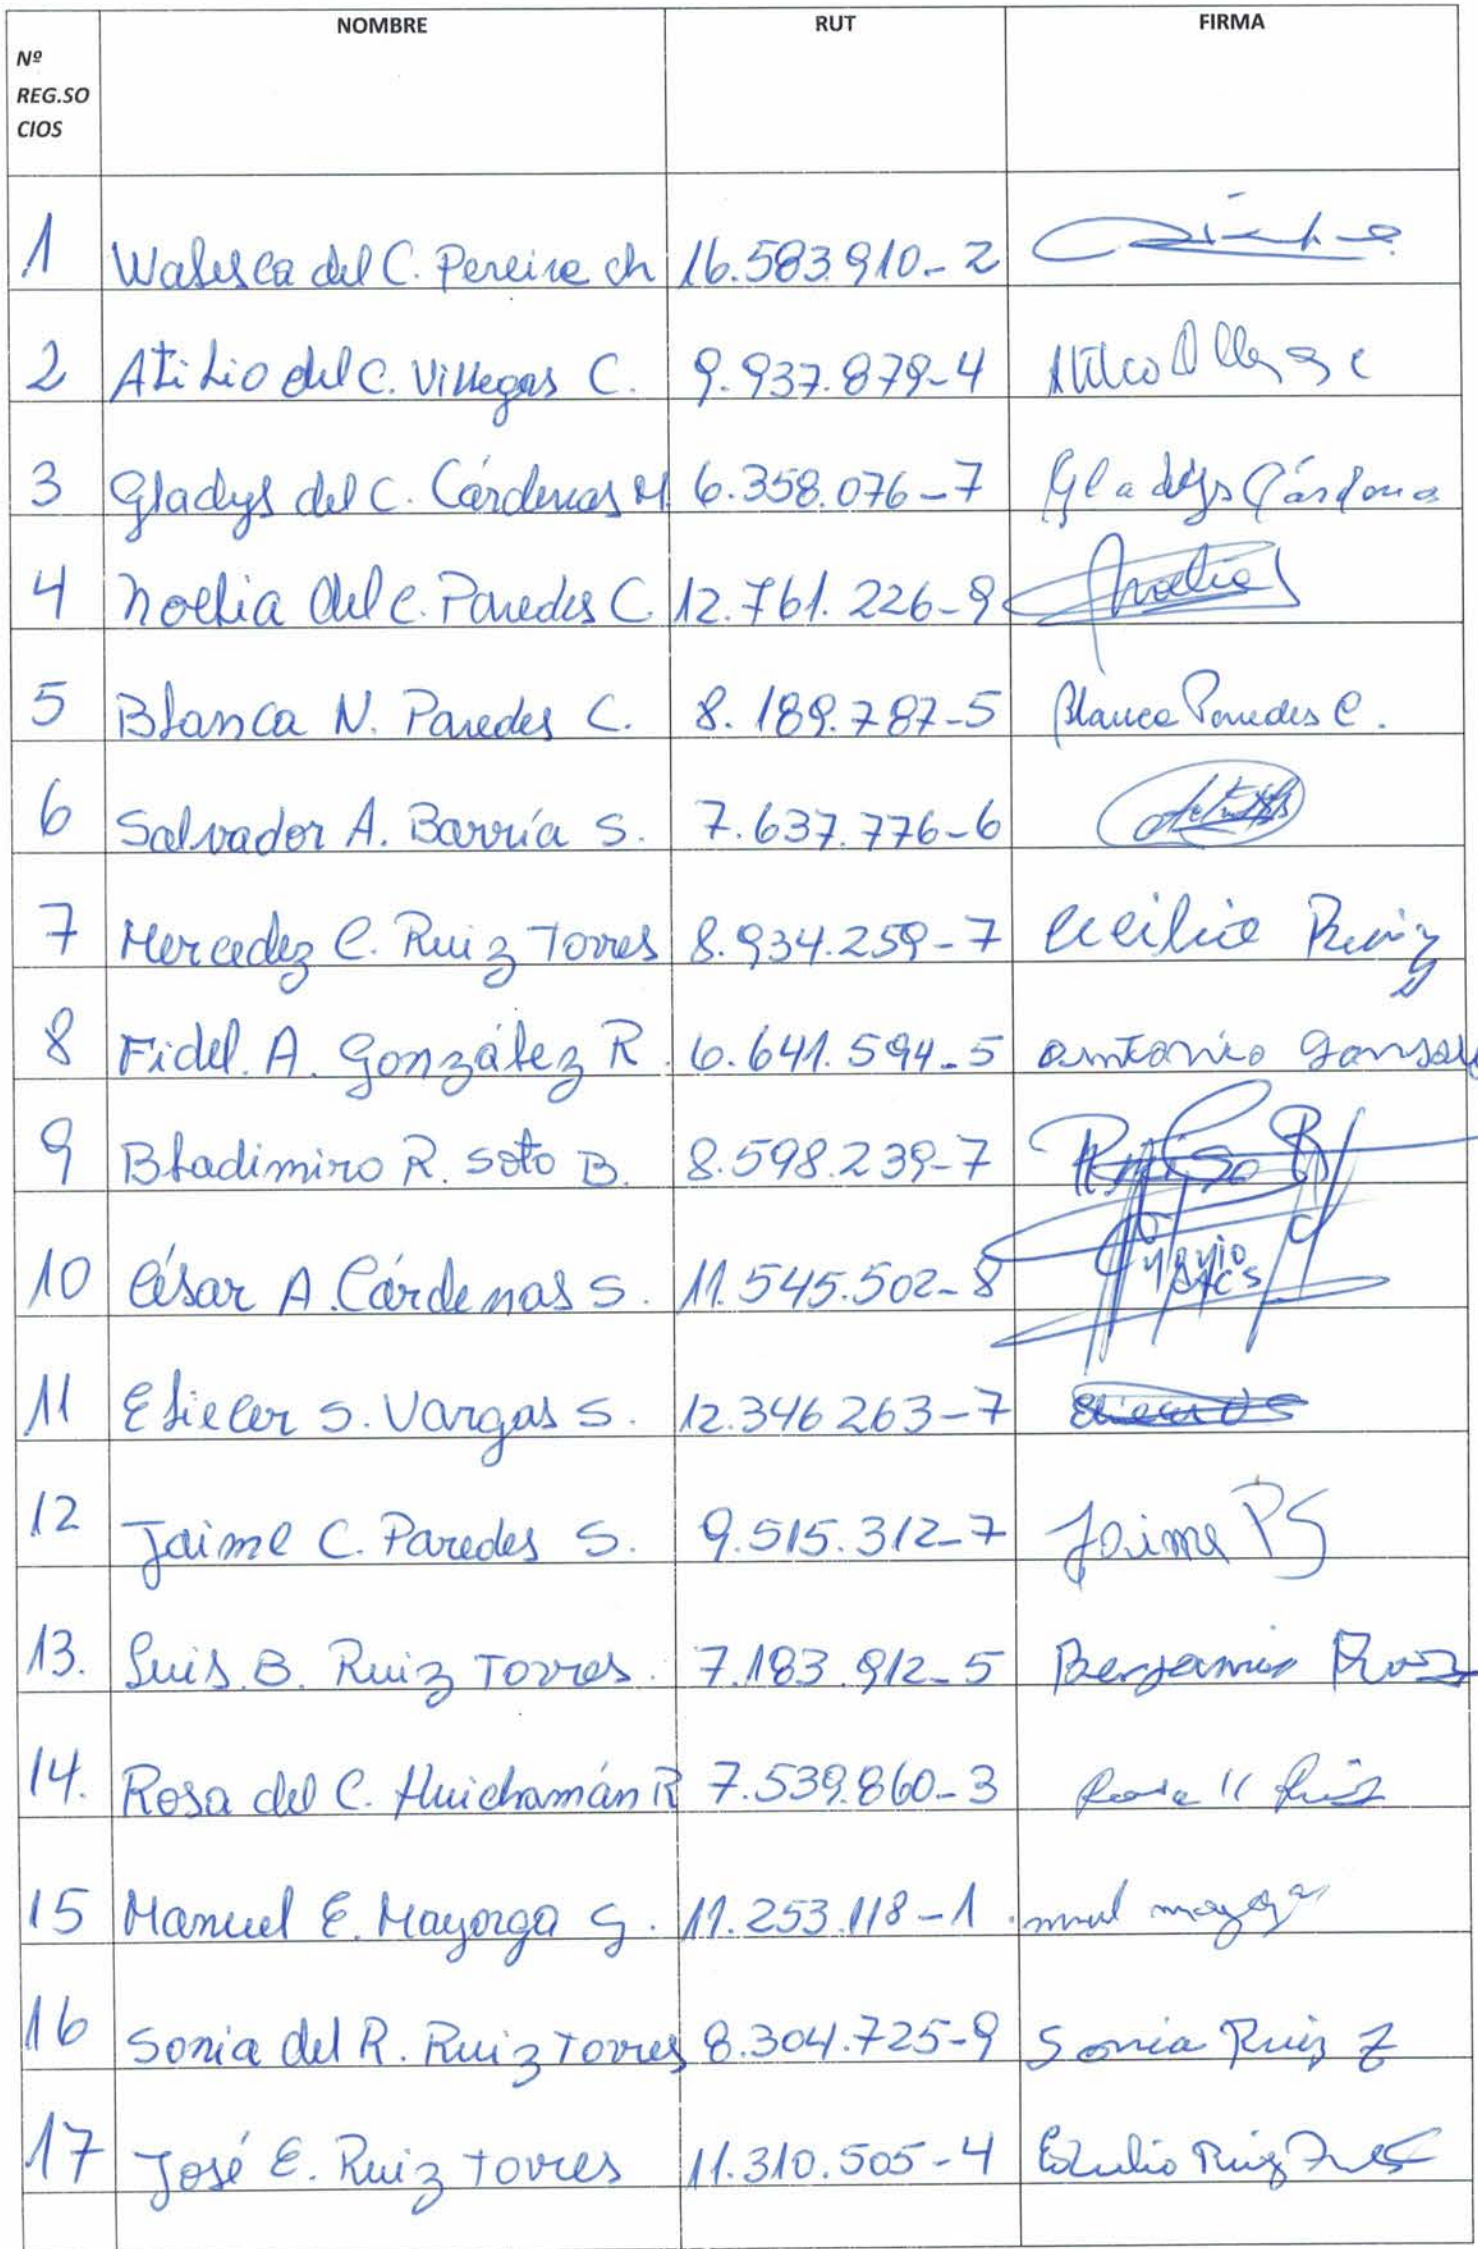 NOMBRE RUT FIRMA
Nº
REG.SO
CIOS
1 Walesca del C. Pereira ch 16.583.910-2
2 Atilio del C. Villegas C. 9.937.879-4
3 Gladys del C. Cárdenas M. 6.358.076-7 Gladys Cárdena
4 Noelia del C. Paredes C. 12.761.226-9 Noelia
5 Blanca N. Paredes C. 8.189.787-5 Blanca Paredes C.
6 Salvador A. Barría S. 7.637.776-6
7 Mercedez C. Ruiz Torres 8.934.259-7 Cecilia Ruiz
8 Fidel. A. González R. 6.641.594-5 Antonio Gonsalez
9 Bladimiro R. Soto B. 8.598.239-7
10 César A. Cárdenas S. 11.545.502-8
11 Eliecer S. Vargas S. 12.346263-7
12 Jaime C. Paredes S. 9.515.312-7 Jaime PS
13. Luis B. Ruiz Torres. 7.183.912-5 Benjamin Ruiz
14. Rosa del C. Huichamán R 7.539.860-3 Rosa H Ruiz
15 Manuel E. Mayorga G. 11.253.118-1
16 Sonia del R. Ruiz Torres 8.304.725-9 Sonia Ruiz
17 José E. Ruiz Torres 11.310.505-4 Ruiz